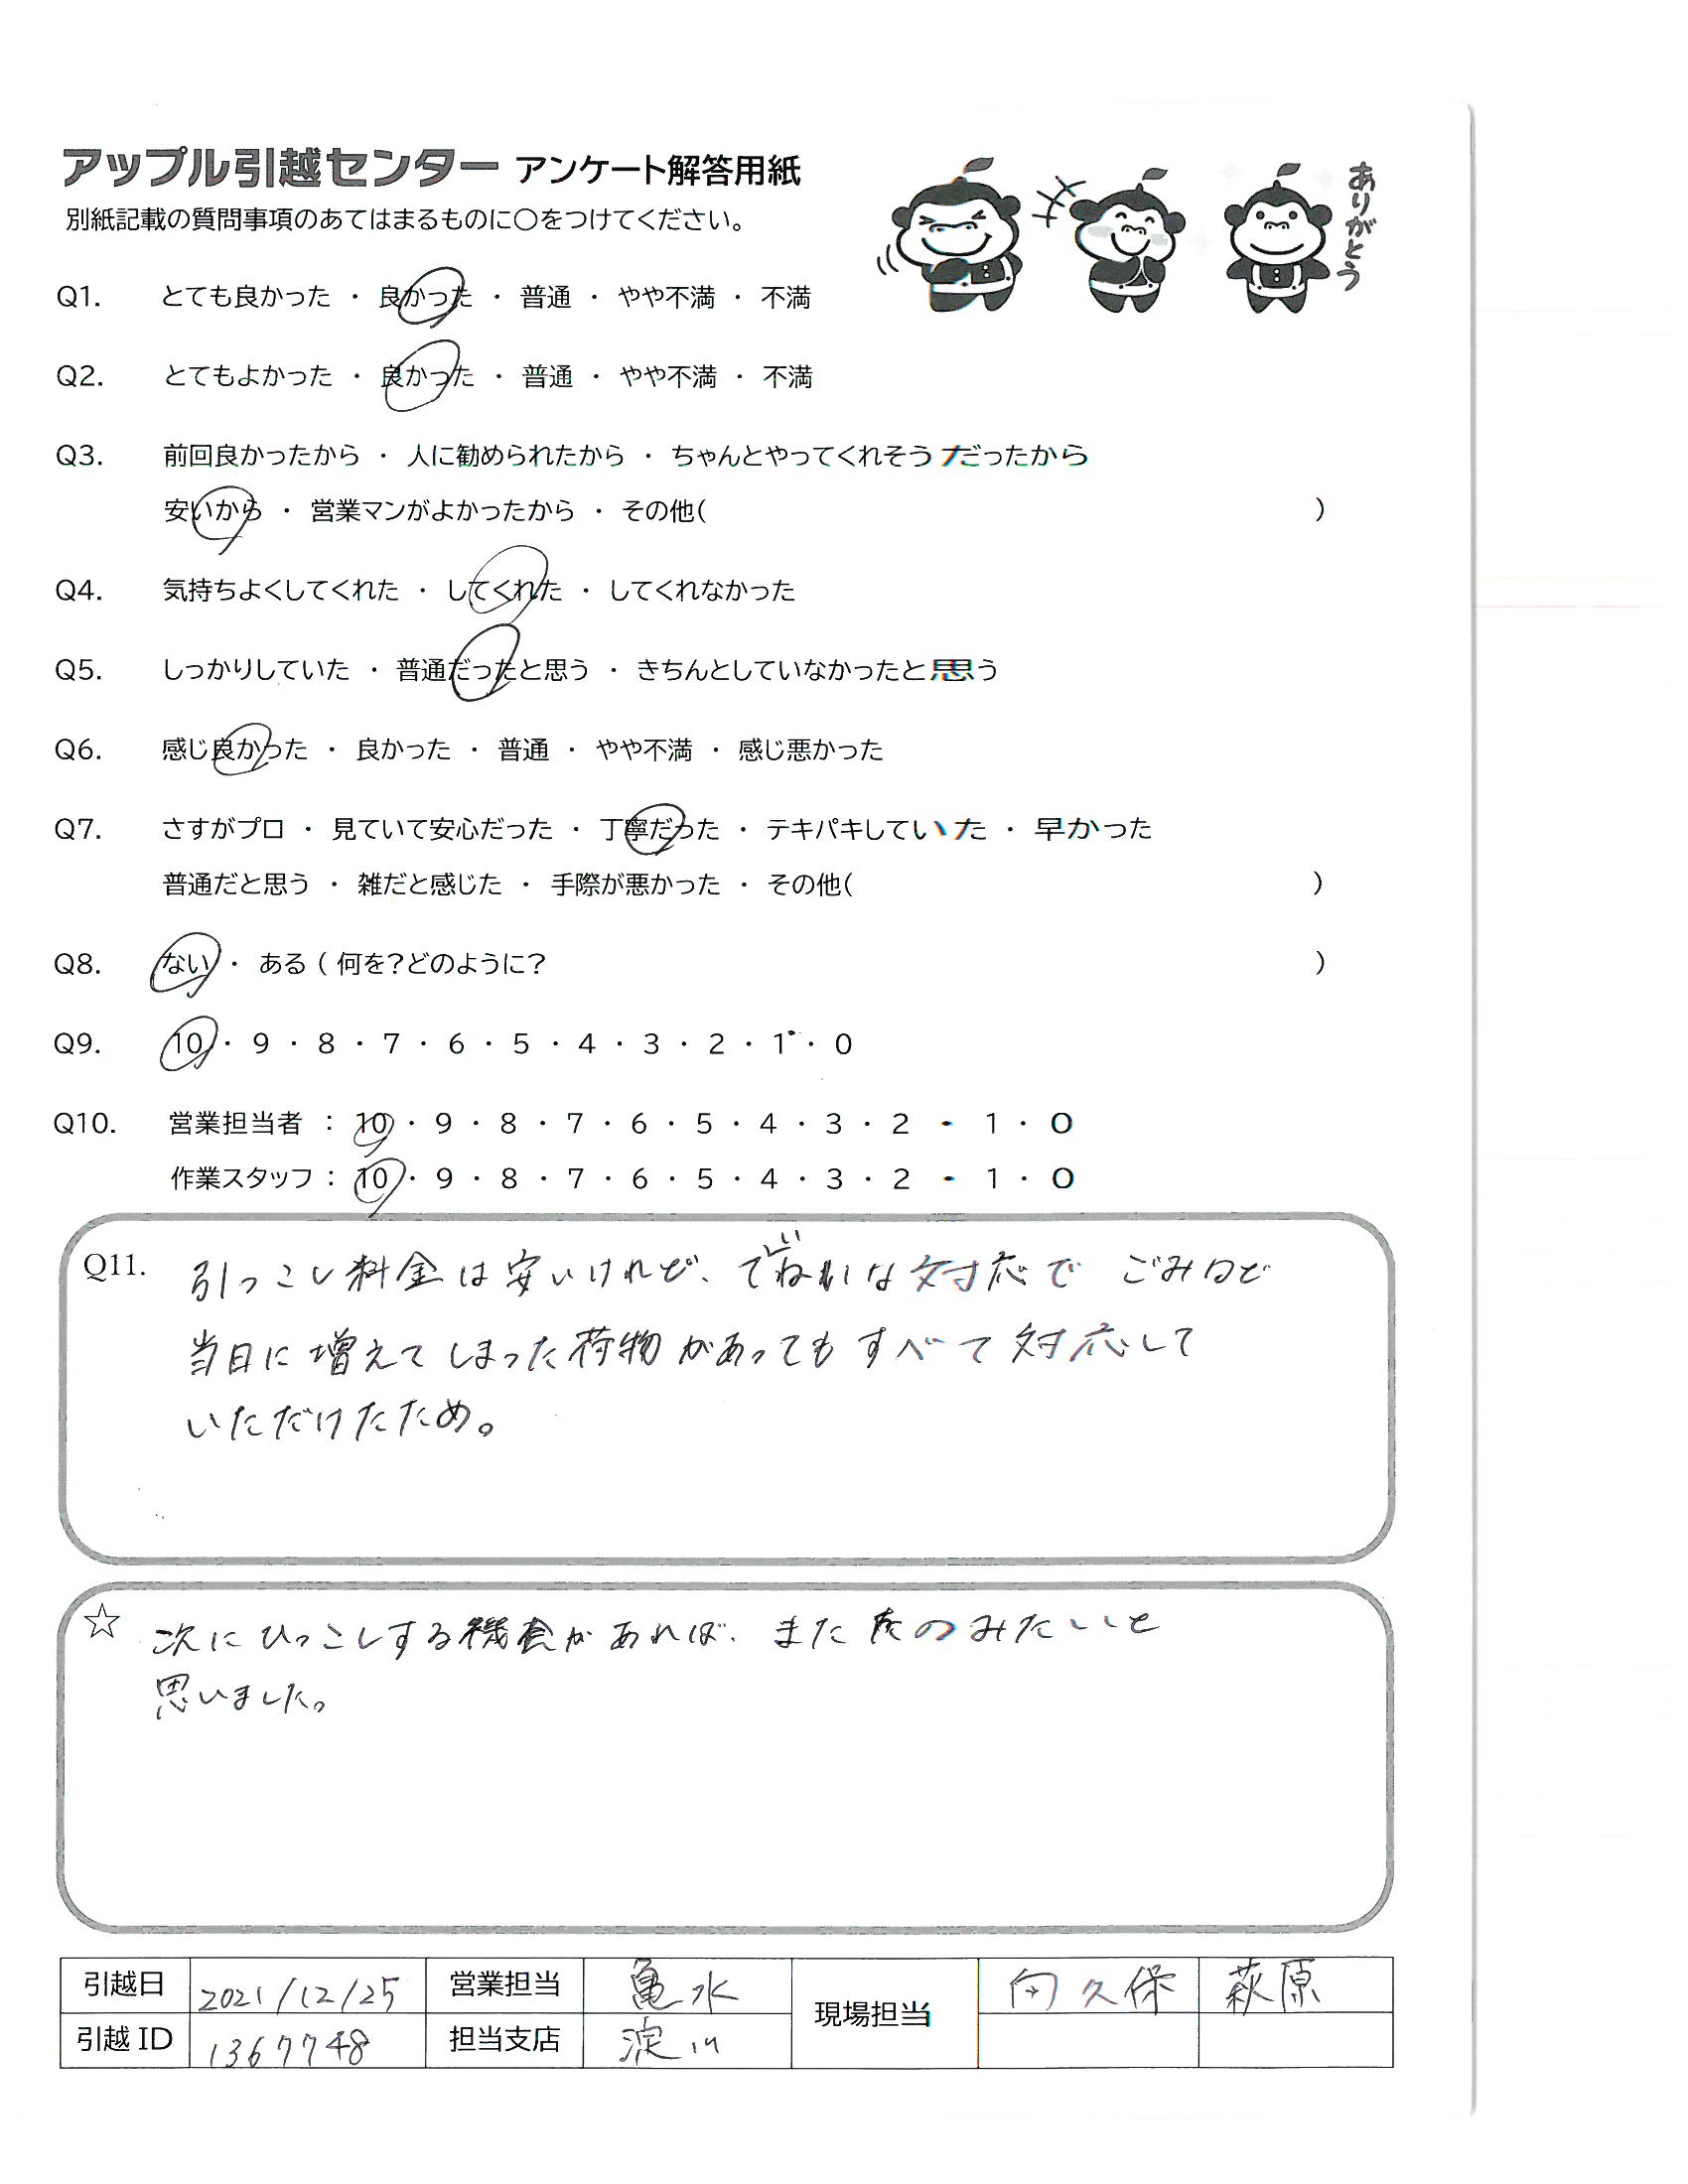 アップル引越センター アンケート解答用紙
別紙記載の質問事項のあてはまるものに〇をつけてください。
ありがとう
Q1. とても良かった ・ 良かった ・ 普通 ・ やや不満 ・ 不満
Q2. とてもよかった ・ 良かった ・ 普通 ・ やや不満 ・ 不満
Q3. 前回良かったから ・ 人に勧められたから ・ ちゃんとやってくれそうだったから
安いから ・ 営業マンがよかったから ・ その他( )
Q4. 気持ちよくしてくれた ・ してくれた ・ してくれなかった
Q5. しっかりしていた ・ 普通だったと思う ・ きちんとしていなかったと思う
Q6. 感じ良かった ・ 良かった ・ 普通 ・ やや不満 ・ 感じ悪かった
Q7. さすがプロ ・ 見ていて安心だった ・ 丁寧だった ・ テキパキしていた ・ 早かった
普通だと思う ・ 雑だと感じた ・ 手際が悪かった ・ その他( )
Q8. ない ・ ある ( 何を?どのように? )
Q9. 10 ・ 9 ・ 8 ・ 7 ・ 6 ・ 5 ・ 4 ・ 3 ・ 2 ・ 1 ・ 0
Q10. 営業担当者 : 10 ・ 9 ・ 8 ・ 7 ・ 6 ・ 5 ・ 4 ・ 3 ・ 2 ・ 1 ・ 0
作業スタッフ : 10 ・ 9 ・ 8 ・ 7 ・ 6 ・ 5 ・ 4 ・ 3 ・ 2 ・ 1 ・ 0
Q11. 引っこし料金は安いけれど、ていねいな対応で ごみなど
当日に増えてしまった荷物があってもすべて対応して
いただけたため。
☆ 次にひっこしする機会があれば、またたのみたいと
思いました。
引越日 2021/12/25 営業担当 亀水 現場担当 向久保 萩原
引越 ID 1367748 担当支店 淀川